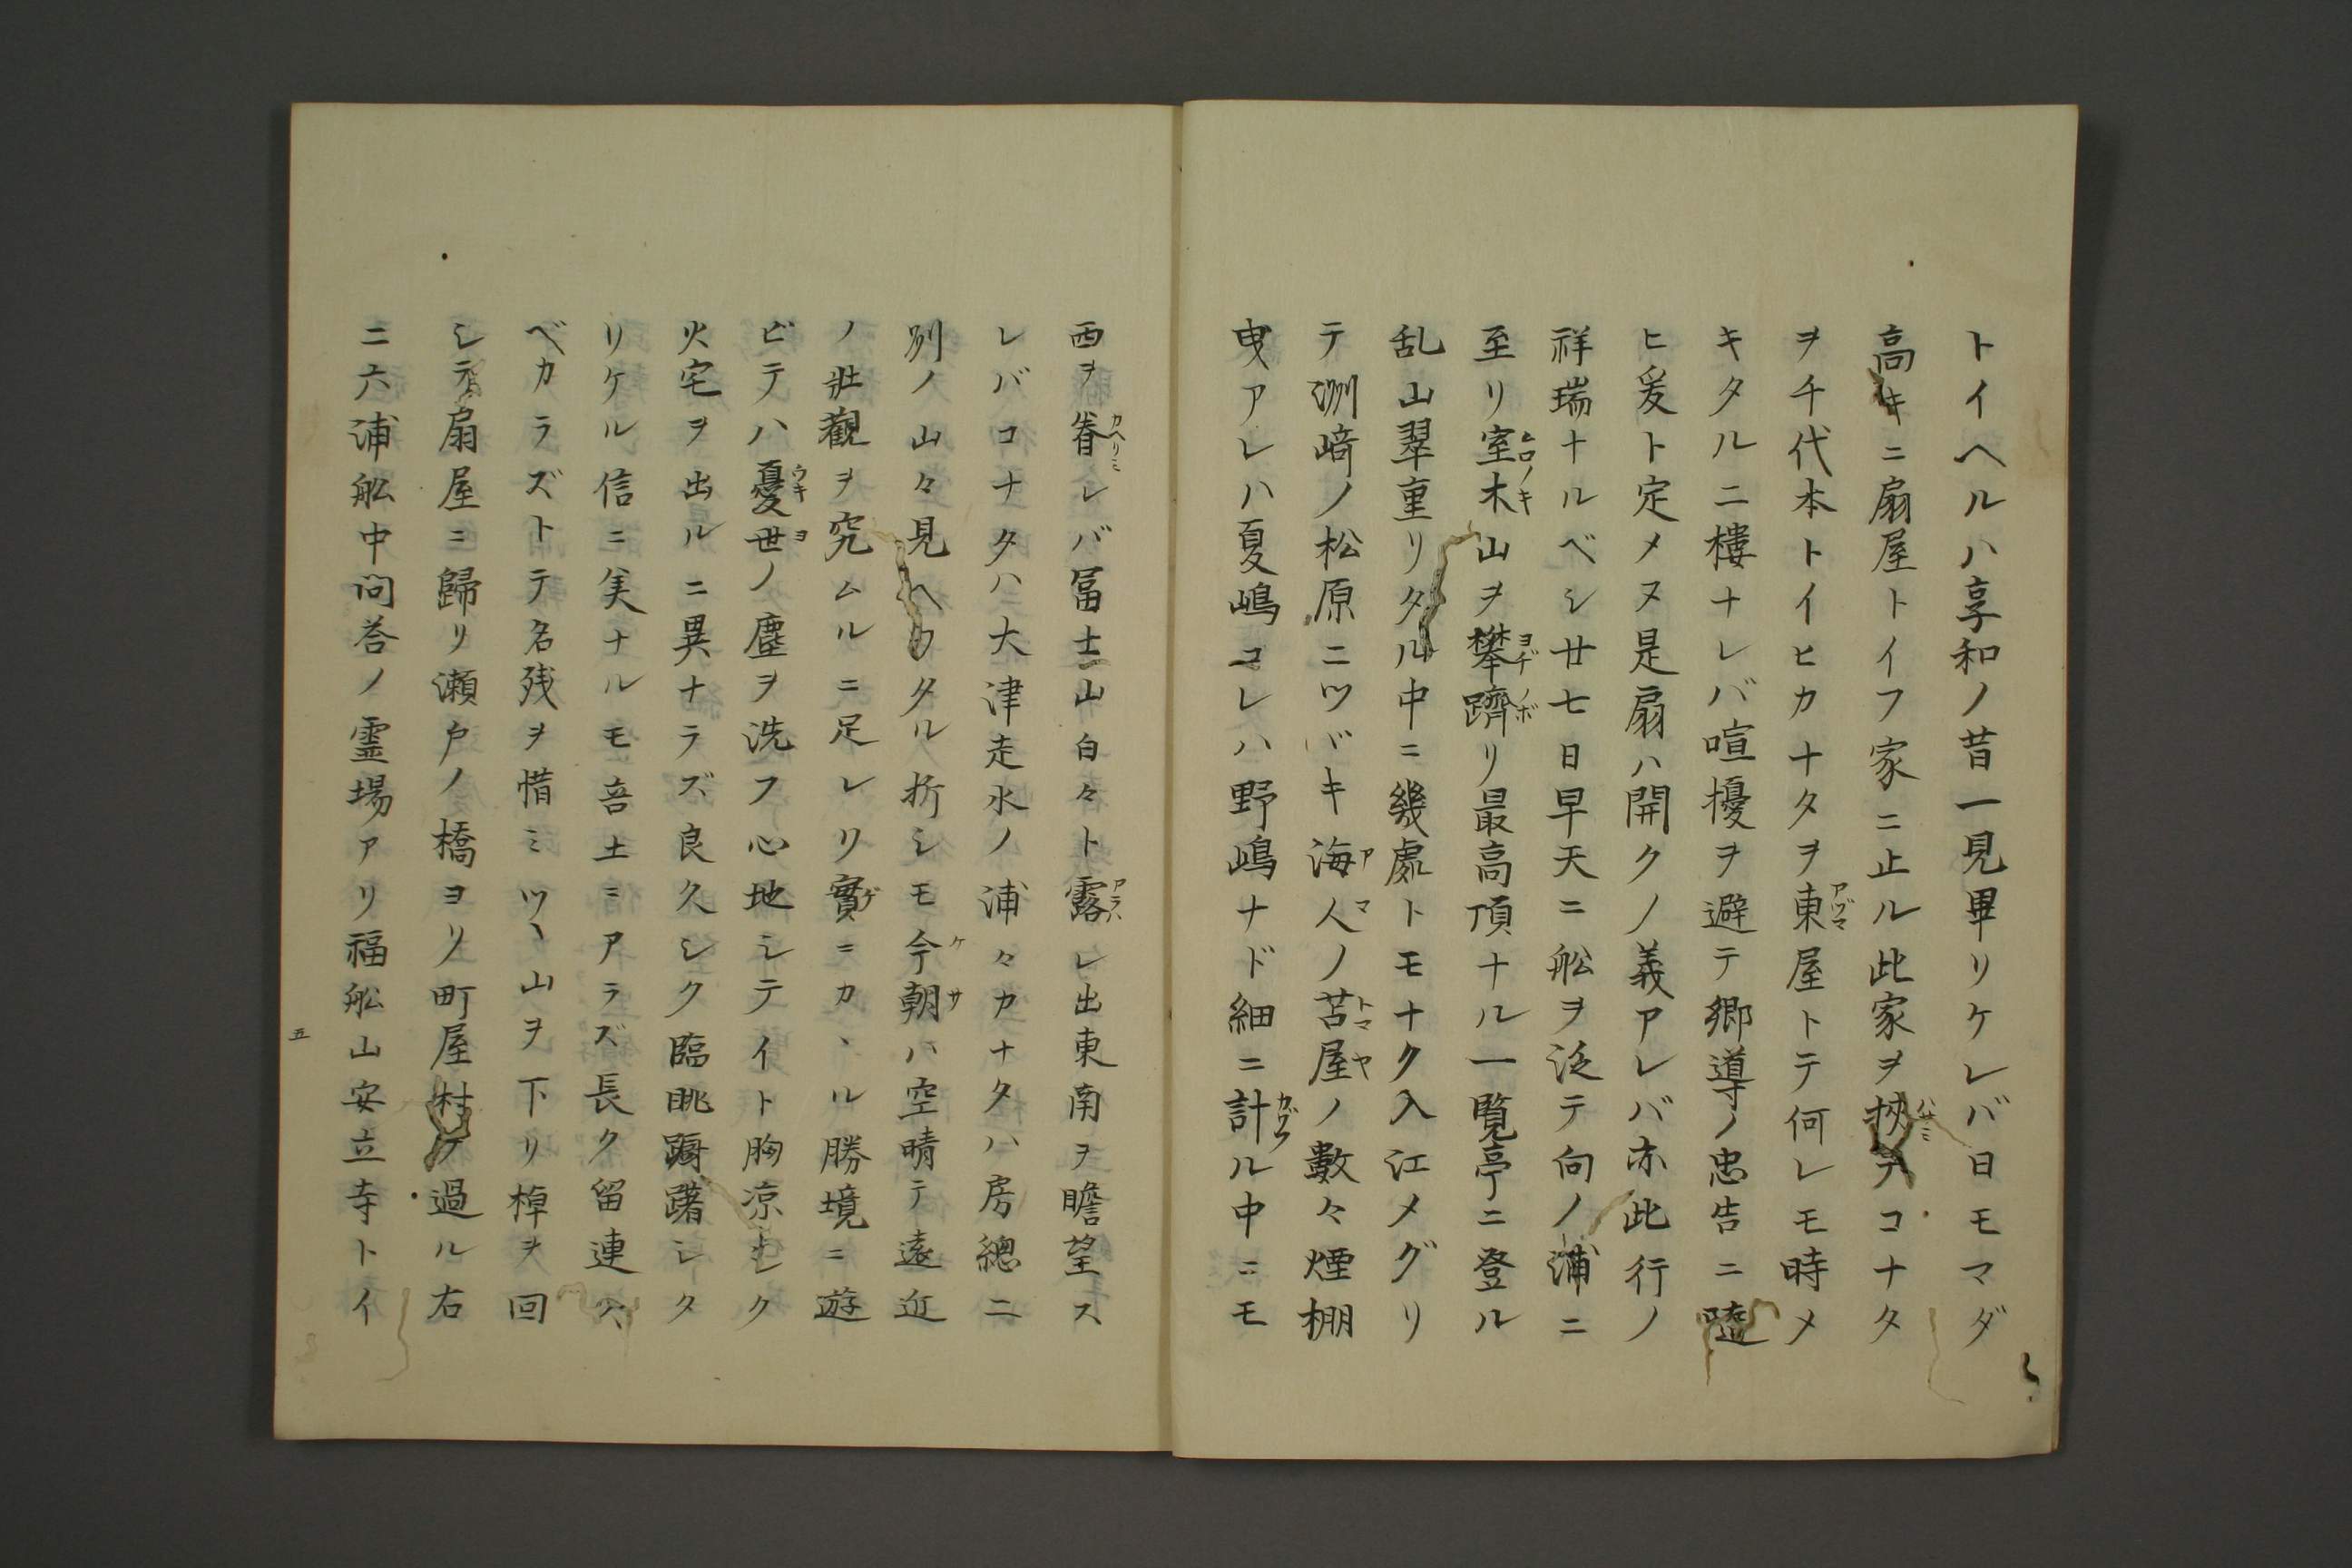 トイヘルハ享和ノ昔一見畢リケレバ日モマダ
高キニ扇屋トイフ家ニ止ル此家ヲ挾テコナタ
ヲ千代本トイヒカナタヲ東屋トテ何レモ時メ
キタル二樓ナレバ喧擾ヲ避テ郷導ノ忠告ニ
ヒ爰ト定メヌ是扇ハ開クノ義アレバ亦此行ノ
祥瑞ナルベシ廿七日早天ニ舩ヲ泛テ向ノ浦ニ
至リ室木山ヲ攀躋リ最高頂ナル一覧亭ニ登ル
乱山翠重リタル中ニ幾處トモナク入江メグリ
テ洲﨑ノ松原ニツヾキ海人ノ苫屋ノ數々煙棚
曳アレハ夏嶋コレハ野嶋ナド細ニ計ル中ニモ
西ヲ眷レバ冨士山白々ト露レ出東南ヲ瞻望ス
レバコナタハ大津走水ノ浦々カナタハ房總ニ
列ノ山々見ヘワタル折シモ今朝ハ空晴テ遠近
ノ壯觀ヲ究ムルニ足レリ實ニカヽル勝境ニ遊
ビテハ憂世ノ塵ヲ洗フ心地シテイト胸凉シク
火宅ヲ出ルニ異ナラズ良久シク臨眺躊躇シタ
リケル信ニ美ナルモ吾土ニアラズ長ク留連ス
ベカラズトテ名残ヲ惜ミツヽ山ヲ下リ棹ヲ回
シテ扇屋ニ歸リ瀬戸ノ橋ヨリ町屋村ヲ過ル右
ニ六浦舩中問答ノ霊場アリ福舩山安立寺トイ
五